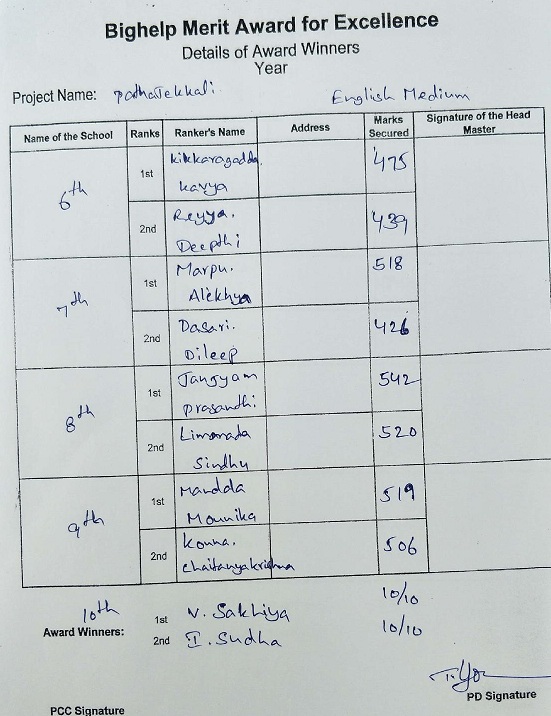 Bighelp Merit Award for Excellence
Details of Award Winners
Year
Project Name: PathaTekkali English Medium
Name of the School Ranks Ranker's Name Address Marks Secured Signature of the Head Master
6th
1st Kikkaragadda Kavya 475
2nd Reyya. Deepthi 439
7th
1st Marpu. Alekhya 518
2nd Dasari. Dileep 426
8th
1st Jangyam prasandhi 542
2nd Limmada Sindhu 520
9th
1st Mandda Mounika 519
2nd Konna. Chaitanyakrishna 506
10th
Award Winners:
1st V. Sakhiya 10/10
2nd I. Sudha 10/10
PD Signature
PCC Signature